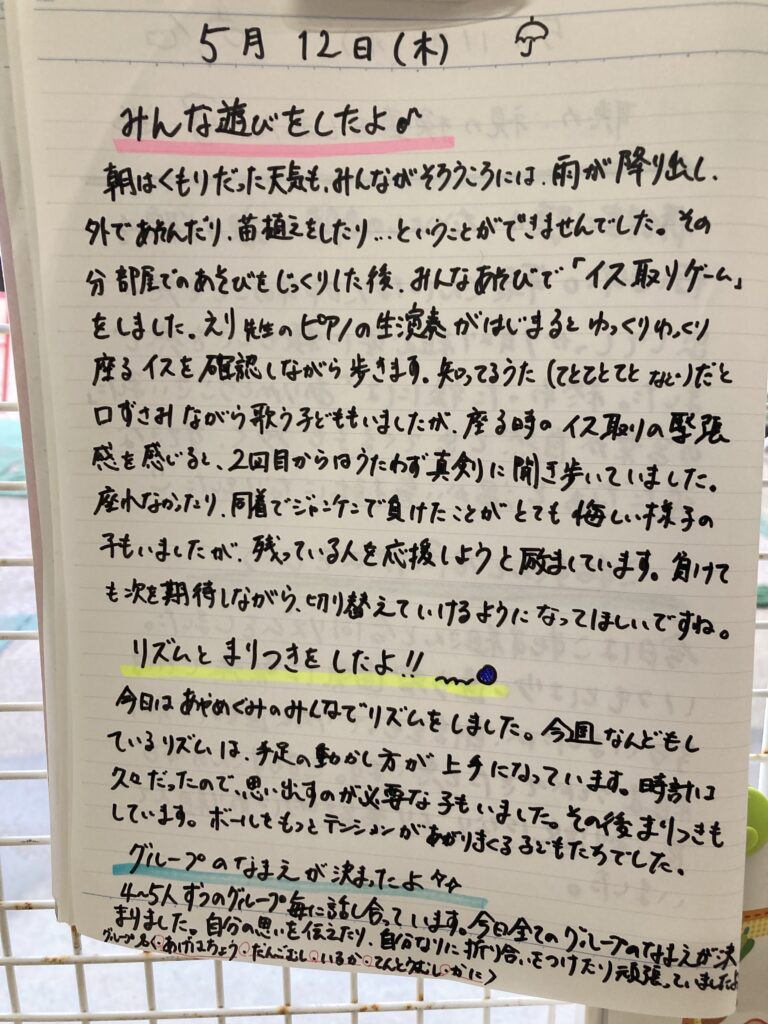 5月12日(木)
みんな遊びをしたよ♪
朝はくもりだった天気も、みんながそろうころには、雨が降り出し、
外であそんだり、苗植えをしたり…ということができませんでした。その
分部屋でのあそびをじっくりした後、みんなあそびで「イス取りゲーム」
をしました。えり先生のピアノの生演奏がはじまるとゆっくりゆっくり
座るイスを確認しながら歩きます。知ってるうた(てとてとてと など)だと
口ずさみながら歌う子どももいましたが、座る時のイス取りの緊張
感を感じると、2回目からはうたわず真剣に聞き歩いていました。
座れなかったり、同着でジャンケンで負けたことがとても悔しい様子の
子もいましたが、残っている人を応援しようと励ましています。負けて
も次を期待しながら、切り替えていけるようになってほしいですね。
リズムとまりつきをしたよ!!
今日はあやめぐみのみんなでリズムをしました。今週なんどもし
ているリズムは、手足の動かし方が上手になっています。時計は
久々だったので、思い出すのが必要な子もいました。その後まりつきも
しています。ボールをもつとテンションがあがりまくる子どもたちでした。
グループのなまえが決まったよ
4~5人ずつのグループ毎に話し合っています。今日全てのグループのなまえが決
まりました。自分の思いを伝えたり、自分なりに折り合いをつけたり頑張っていましたよ
グループ名く・あげはちょう・だんごむし・いるか・てんとうむし・かに>